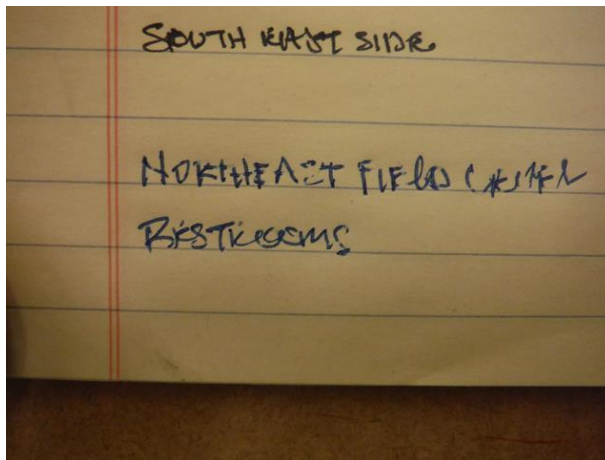 SOUTH EAST SIDE
NORTHEAST FIELDS
RESTROOMS